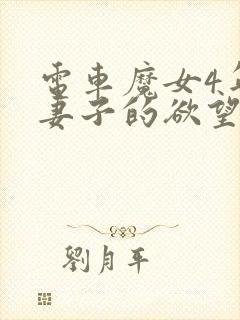 電車魔女4年
妻子的欲望
劉月平